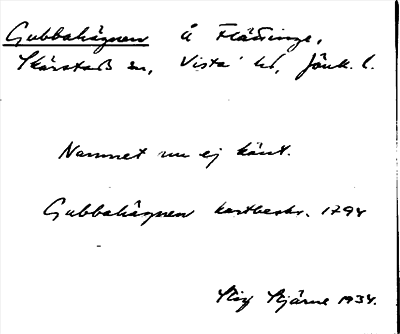 Gubbahägnen å Flättinge,
Skärstad sn, Vista hd, Jönk. l.
Namnet nu ej känt.
Gubbahägnen kartbeskr. 1794
Stig Stjärne 1934.